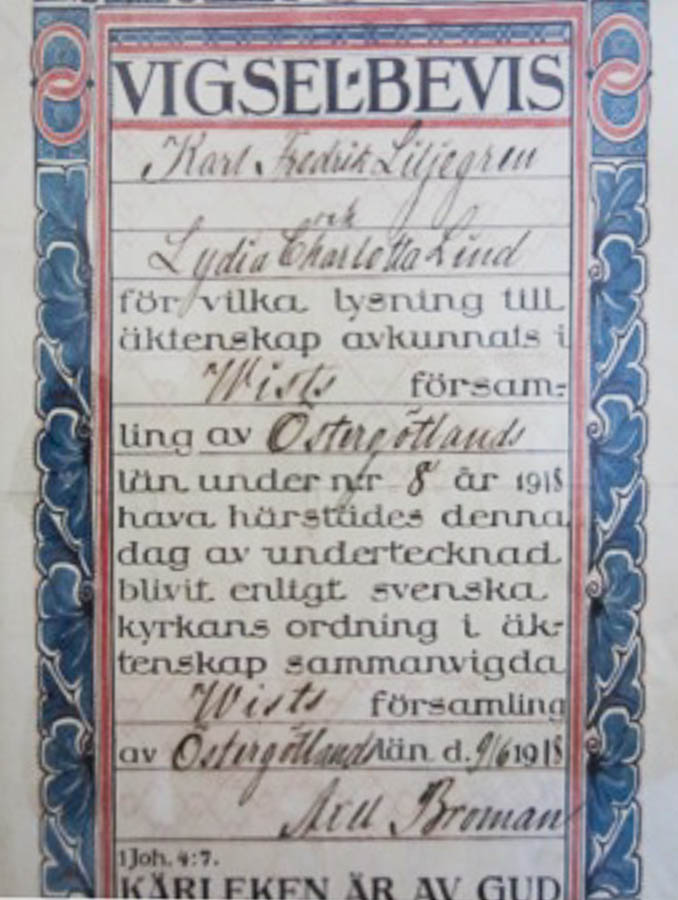 VIGSEL-BEVIS
Karl Fredrik Liljegren
och
Lydia Charlotta Lind
för vilka lysning till
äktenskap avkunnats i
Wists försam-
ling av Östergötlands
län under n:r 8 år 1918
hava härstädes denna
dag av undertecknad
blivit enligt svenska
kyrkans ordning i äk-
tenskap sammanvigda
Wists församling
av Östergötlands län d. 9/6 1918
Axel Broman
1 Joh. 4:7.
KÄRLEKEN ÄR AV GUD